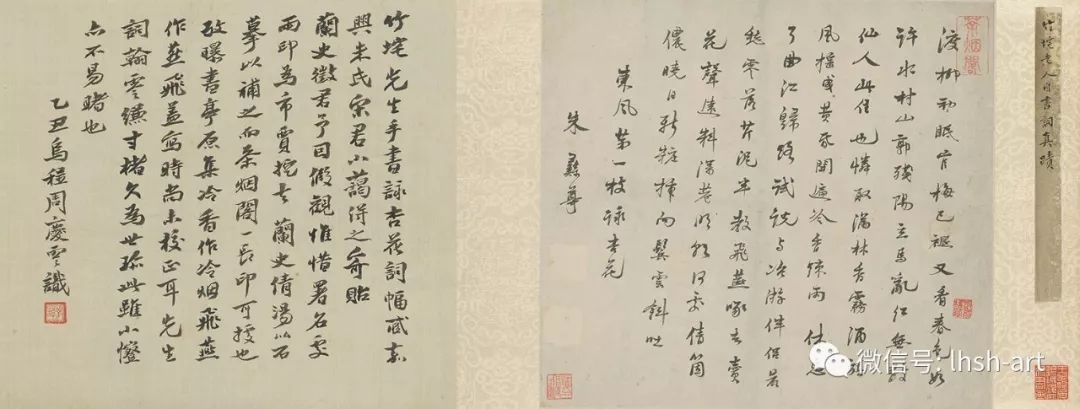 竹垞老人自書詞真蹟
茶煙閣
柳初眠官梅已褪又看春色如
許水村山郭殘陽立馬亂紅無數
仙人此住也憐取滿林香霧酒旗
風橫或黃昏閉遍冷香疎雨 休忘
了曲江歸路試說与冶游伴侶若
愁零落芹泥半數飛燕啄去賣
花聲遠料深巷明朝何處倩箇
儂曉日新粧插向鬢雲斜吐
東風第一枝詠杏花
朱彝尊
竹垞先生手書詠杏花詞幅
興朱氏宗君小藹得之貽
蘭史徵君予因假觀惟惜署名處
兩印為市賈挖去蘭史倩湯以石
摹以補之尚茶烟閣一長印可據也
攷曝書亭原集冷香作冷烟飛燕
作燕飛蓋寫時尚未校正耳先生
詞翰零縑寸楮久為世珍此雖小
亦不易睹也
乙丑烏程周慶雲識
微信号: lhsh-art